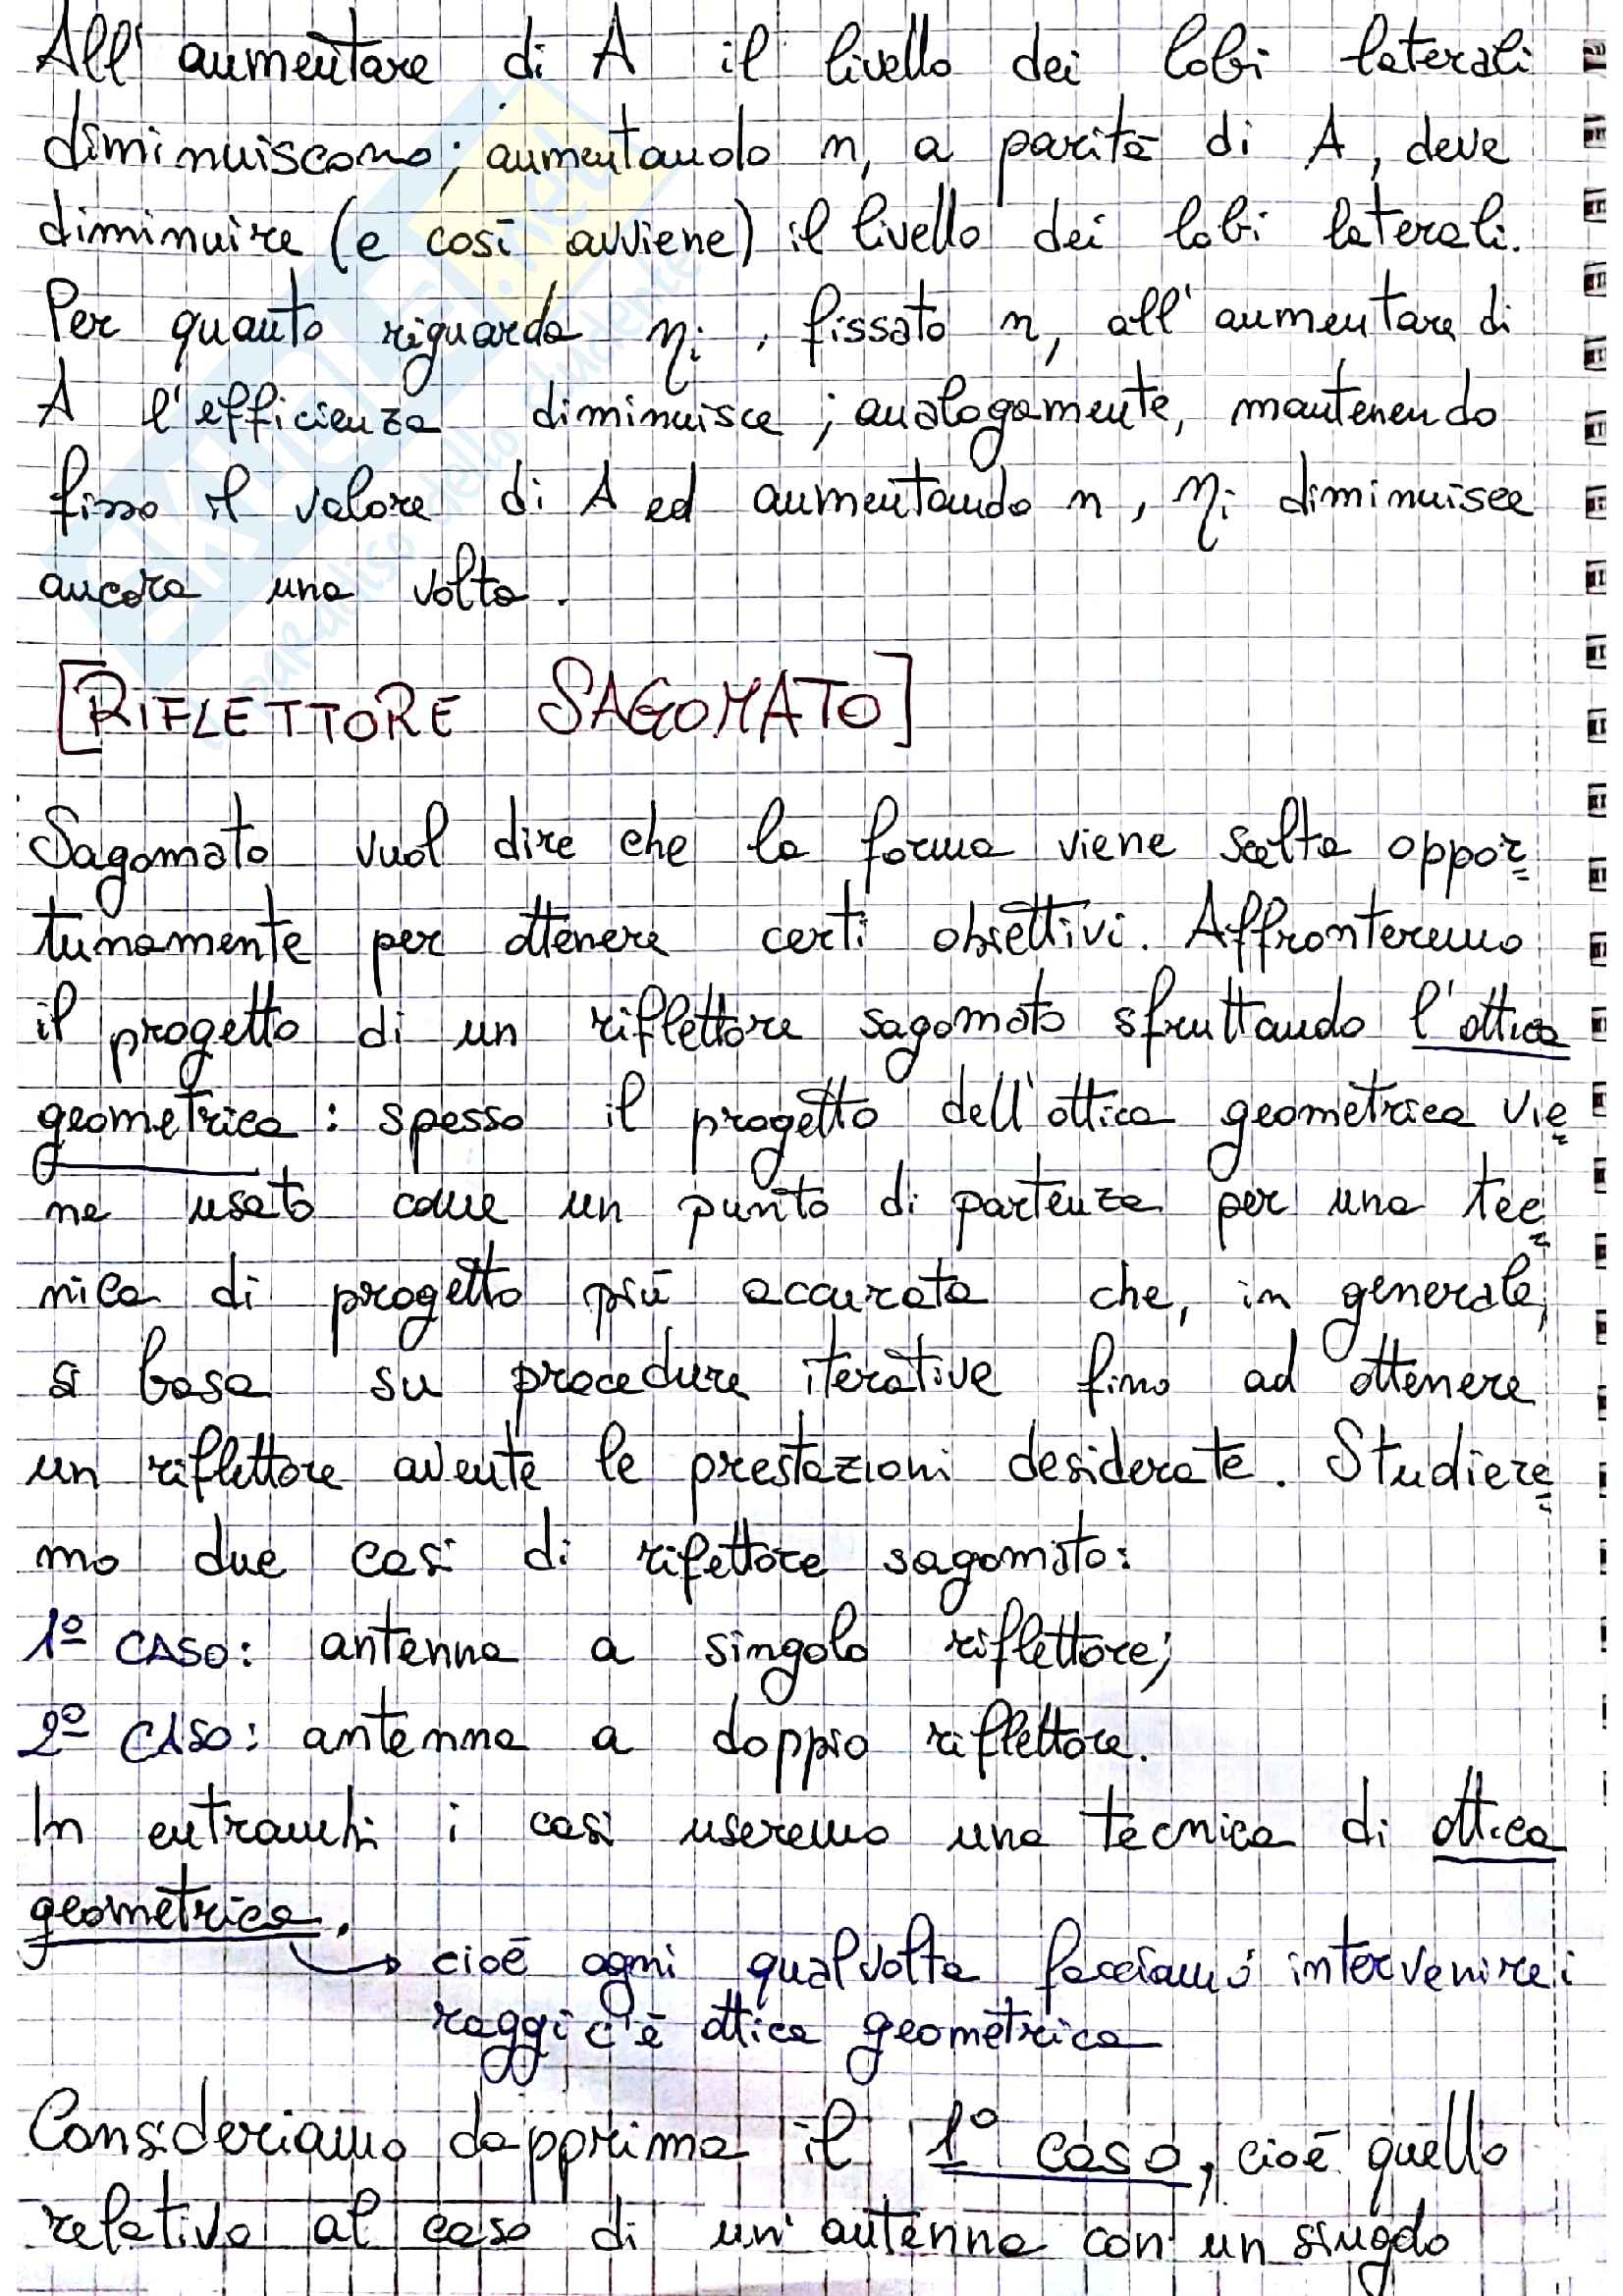 All' aumentare di A il livello dei lobi laterali
diminuiscono; aumentando n, a parità di A, deve
diminuire (e così avviene) il livello dei lobi laterali.
Per quanto riguarda ηi, fissato n, all'aumentare di
A l'efficienza diminuisce; analogamente, mantenendo
fisso il valore di A ed aumentando n, ηi diminuisce
ancora una volta.
[RIFLETTORE SAGOMATO]
Sagomato vuol dire che la forma viene scelta oppor=
tunamente per ottenere certi obiettivi. Affronteremo
il progetto di un riflettore sagomato sfruttando l'ottica
geometrica: spesso il progetto dell'ottica geometrica vie=
ne usato come un punto di partenza per una tec=
nica di progetto più accurata che, in generale,
si basa su procedure iterative fino ad ottenere
un riflettore avente le prestazioni desiderate. Studiere=
mo due casi di rifettore sagomato:
1º CASO: antenna a singolo riflettore;
2º CASO: antenna a doppio riflettore.
In entrambi i casi useremo una tecnica di ottica
geometrica.
→ cioè ogni qualvolta facciamo intervenire i
raggi c'è ottica geometrica
Consideriamo dapprima il 1º caso, cioè quello
relativo al caso di un'antenna con un singolo